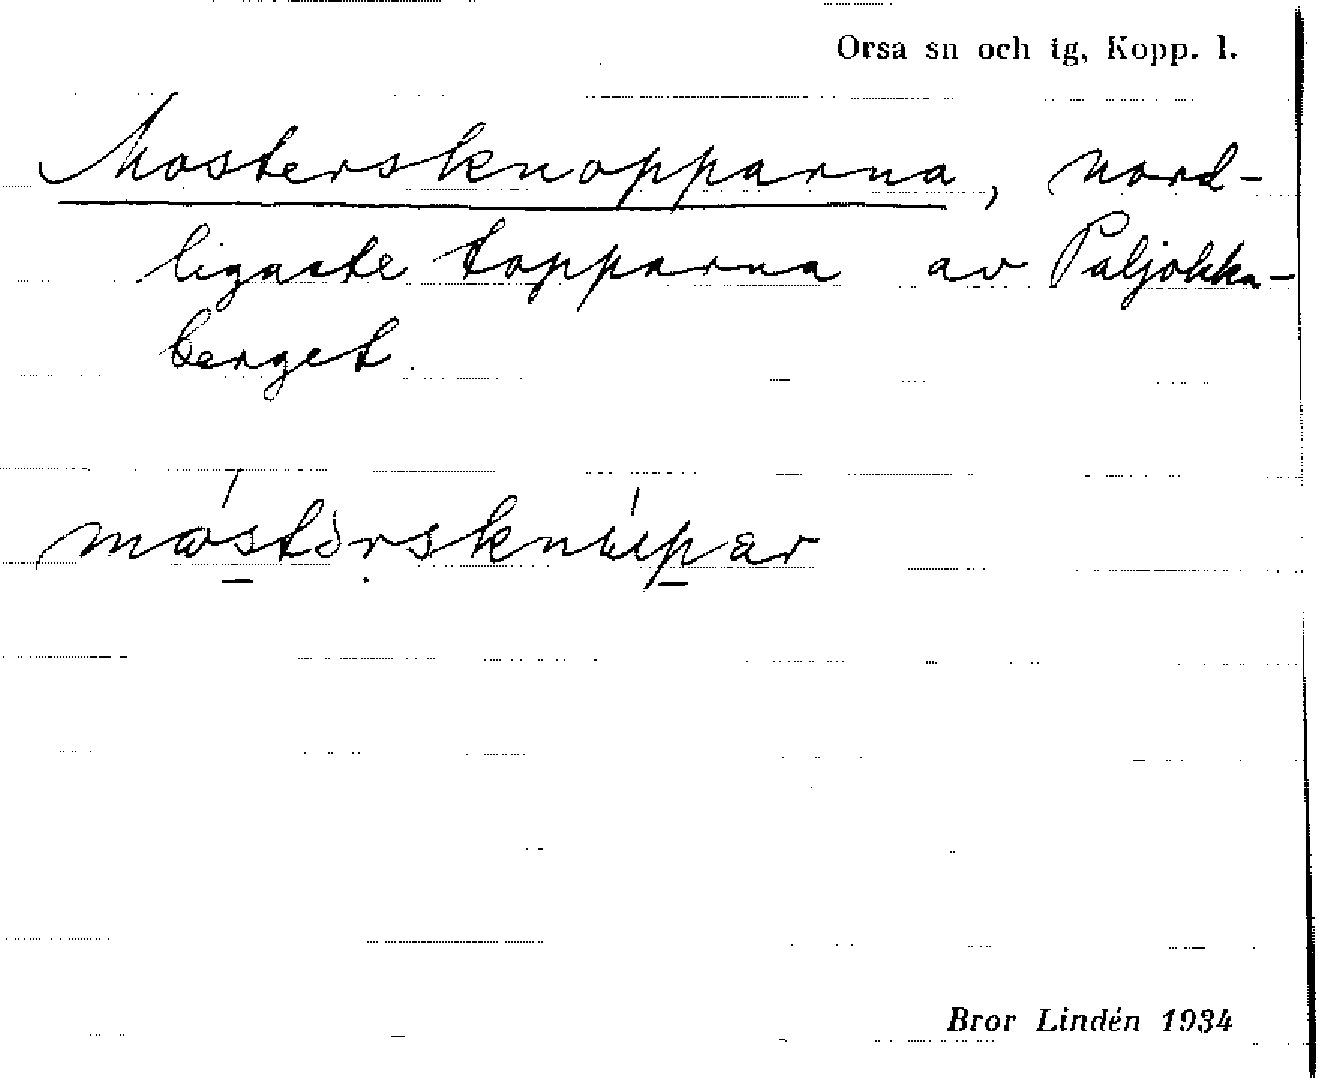 Orsa sn och tg, Kopp. l.
Mostersknopparna, nord-
ligaste topparna av Paljokka-
berget.
Bror Lindén 1934